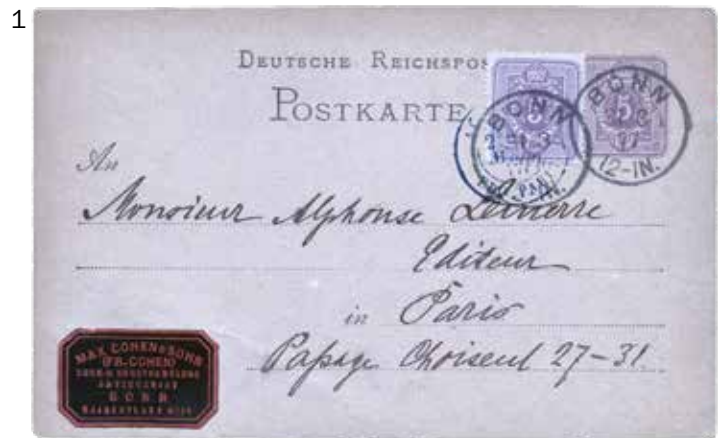 1
DEUTSCHE REICHSPOS
POSTKARTE
5
BONN
BONN
12-IN.
An
Monsieur Alphonse Lemerre
Editeur
in Paris
Passage Choiseul 27-31.
MAX COHEN & SOHN
(FR. COHEN)
ANTIQUARIAT
BONN